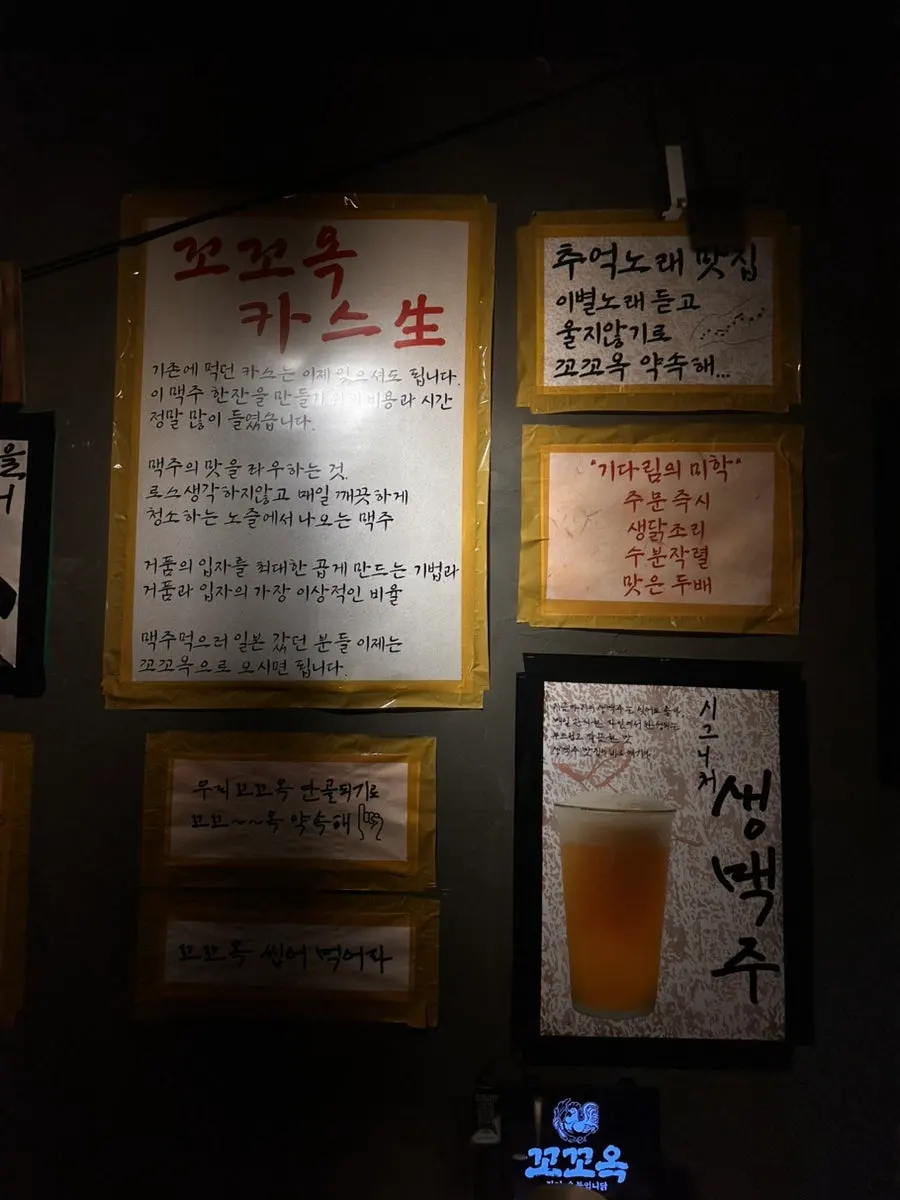 꼬꼬옥
카스生
기존에 먹던 카스는 이제 잊으셔도 됩니다.
이 맥주 한잔을 만들기 위해 비용과 시간
정말 많이 들였습니다.
맥주의 맛을 좌우하는 것.
로스생각하지않고 매일 깨끗하게
청소하는 노즐에서 나오는 맥주
거품의 입자를 최대한 곱게 만드는 기법과
거품과 입자의 가장 이상적인 비율
맥주먹으러 일본 갔던 분들 이제는
꼬꼬옥으로 오시면 됩니다.
우리 꼬꼬옥 단골되기로
꼬꼬~~옥 약속해
꼬꼬옥 씹어 먹어라
추억노래 맛집
이별노래 듣고
울지않기로
꼬꼬옥 약속해...
"기다림의 미학"
주문즉시
생닭조리
수분작렬
맛은 두배
시그니처
생맥주
꼬꼬옥